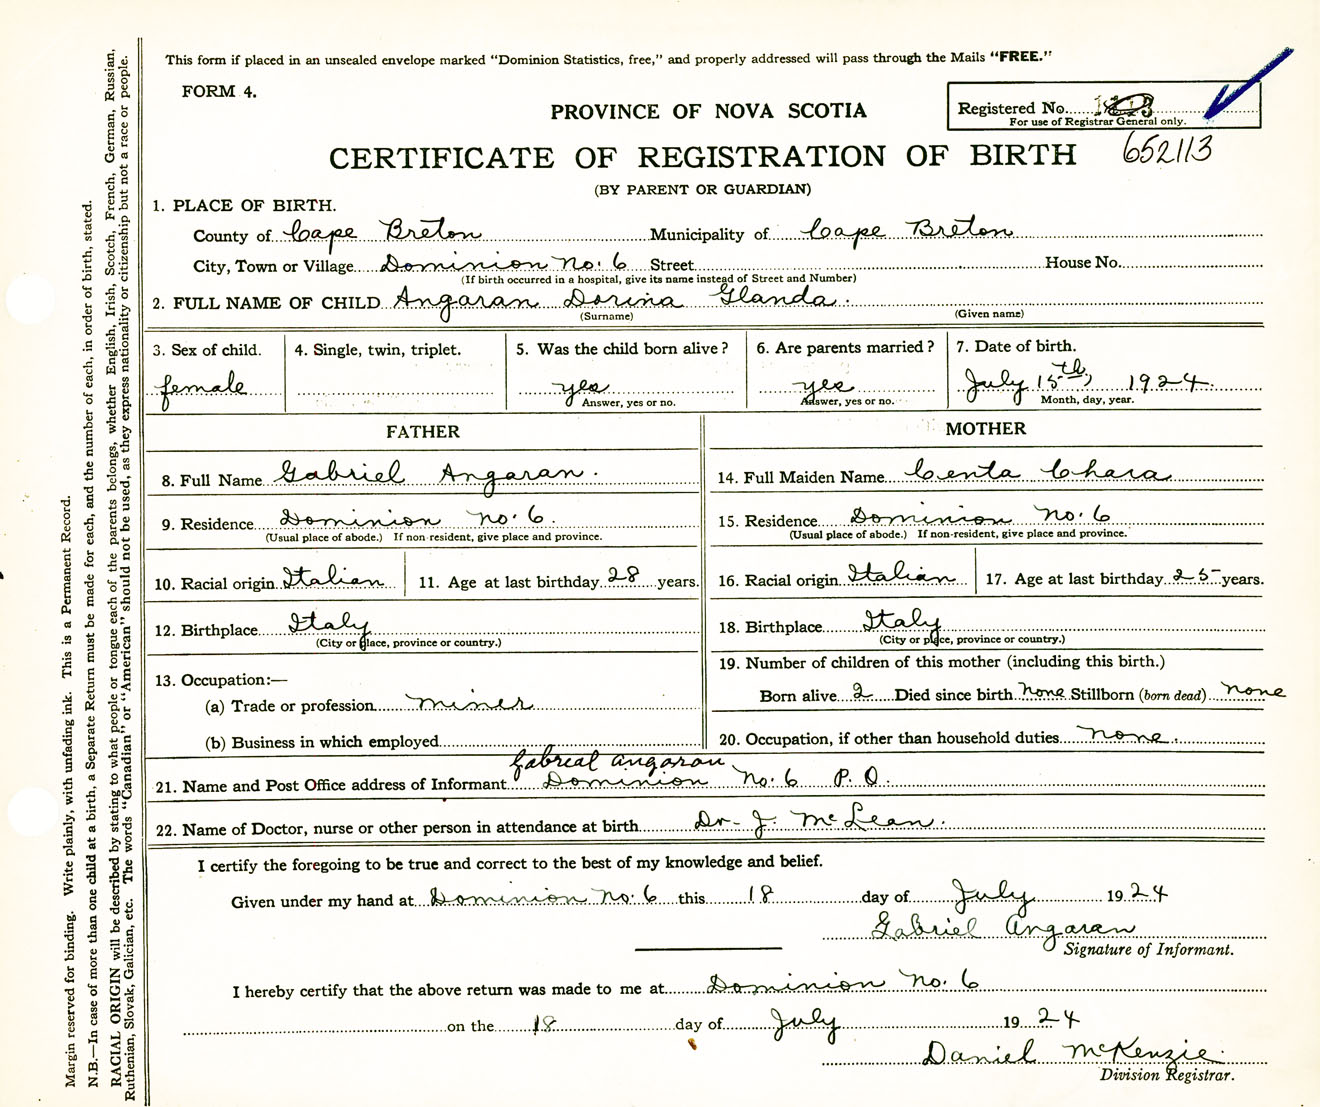 This form if placed in an unsealed envelope marked “Dominion Statistics, free,” and properly addressed will pass through the Mails “FREE.”
FORM 4.
PROVINCE OF NOVA SCOTIA
Registered No.
For use of Registrar General only.
CERTIFICATE OF REGISTRATION OF BIRTH 652113
(BY PARENT OR GUARDIAN)
1. PLACE OF BIRTH.
County of Cape Breton Municipality of Cape Breton
City, Town or Village Dominion No. 6 Street House No.
(If birth occurred in a hospital, give its name instead of Street and Number)
2. FULL NAME OF CHILD Angaran Dorina Glanda.
(Surname) (Given name)
3. Sex of child. 4. Single, twin, triplet. 5. Was the child born alive? 6. Are parents married? 7. Date of birth.
female yes yes July 15th, 1924.
Answer, yes or no. Answer, yes or no. Month, day, year.
FATHER MOTHER
8. Full Name Gabriel Angaran. 14. Full Maiden Name Centa Chara
9. Residence Dominion No. 6. 15. Residence Dominion No. 6
(Usual place of abode.) If non-resident, give place and province. (Usual place of abode.) If non-resident, give place and province.
10. Racial origin Italian 11. Age at last birthday 28 years. 16. Racial origin Italian 17. Age at last birthday 25 years.
12. Birthplace Italy 18. Birthplace Italy
(City or place, province or country.) (City or place, province or country.)
13. Occupation:— 19. Number of children of this mother (including this birth.)
(a) Trade or profession miner Born alive 2 Died since birth none Stillborn (born dead) none
(b) Business in which employed 20. Occupation, if other than household duties none.
Gabreal Angaran
21. Name and Post Office address of Informant Dominion No. 6 P. O.
22. Name of Doctor, nurse or other person in attendance at birth Dr- J. McLean.
I certify the foregoing to be true and correct to the best of my knowledge and belief.
Given under my hand at Dominion No. 6 this 18 day of July 1924
Gabriel Angaran
Signature of Informant.
I hereby certify that the above return was made to me at Dominion No. 6
on the 18 day of July 1924
Daniel McKenzie.
Division Registrar.
Margin reserved for binding. Write plainly, with unfading ink. This is a Permanent Record.
N.B.—In case of more than one child at a birth, a Separate Return must be made for each, and the number of each, in order of birth, stated.
RACIAL ORIGIN will be described by stating to what people or tongue each of the parents belongs, whether English, Irish, Scotch, French, German, Russian,
Ruthenian, Slovak, Galician, etc. The words “Canadian” or “American” should not be used, as they express nationality or citizenship but not a race or people.